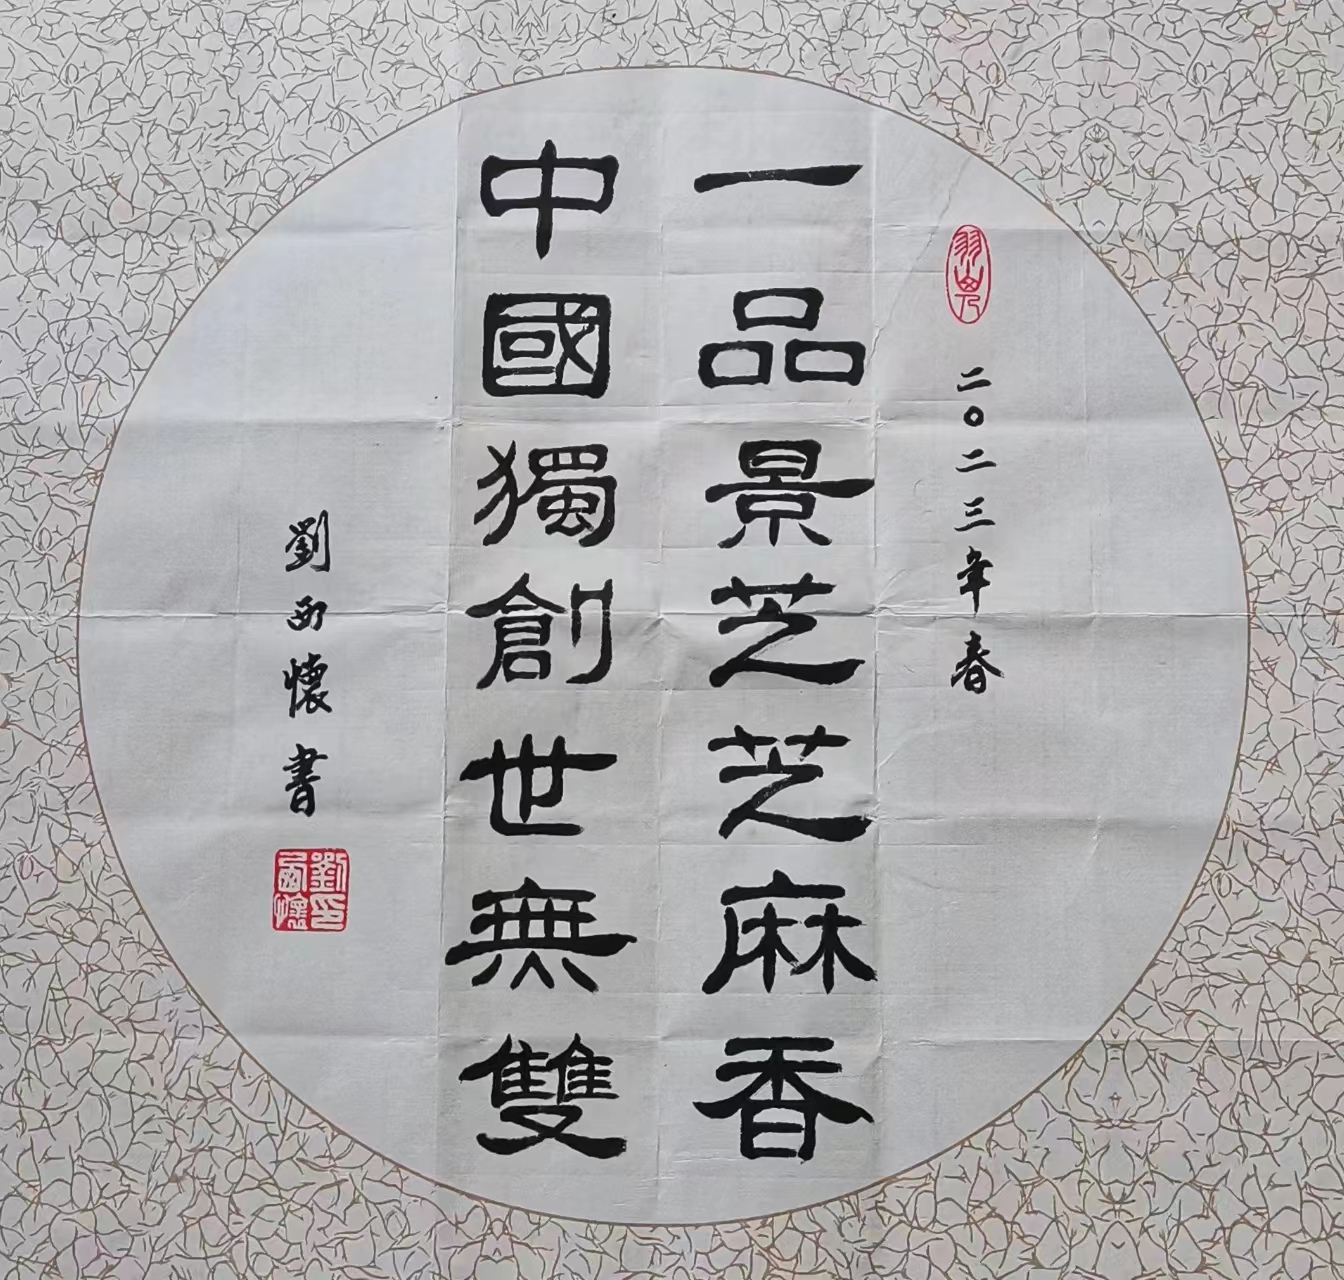 二〇二三年春
一品景芝芝麻香
中國獨創世無雙
劉西懷書
劉印
西懷